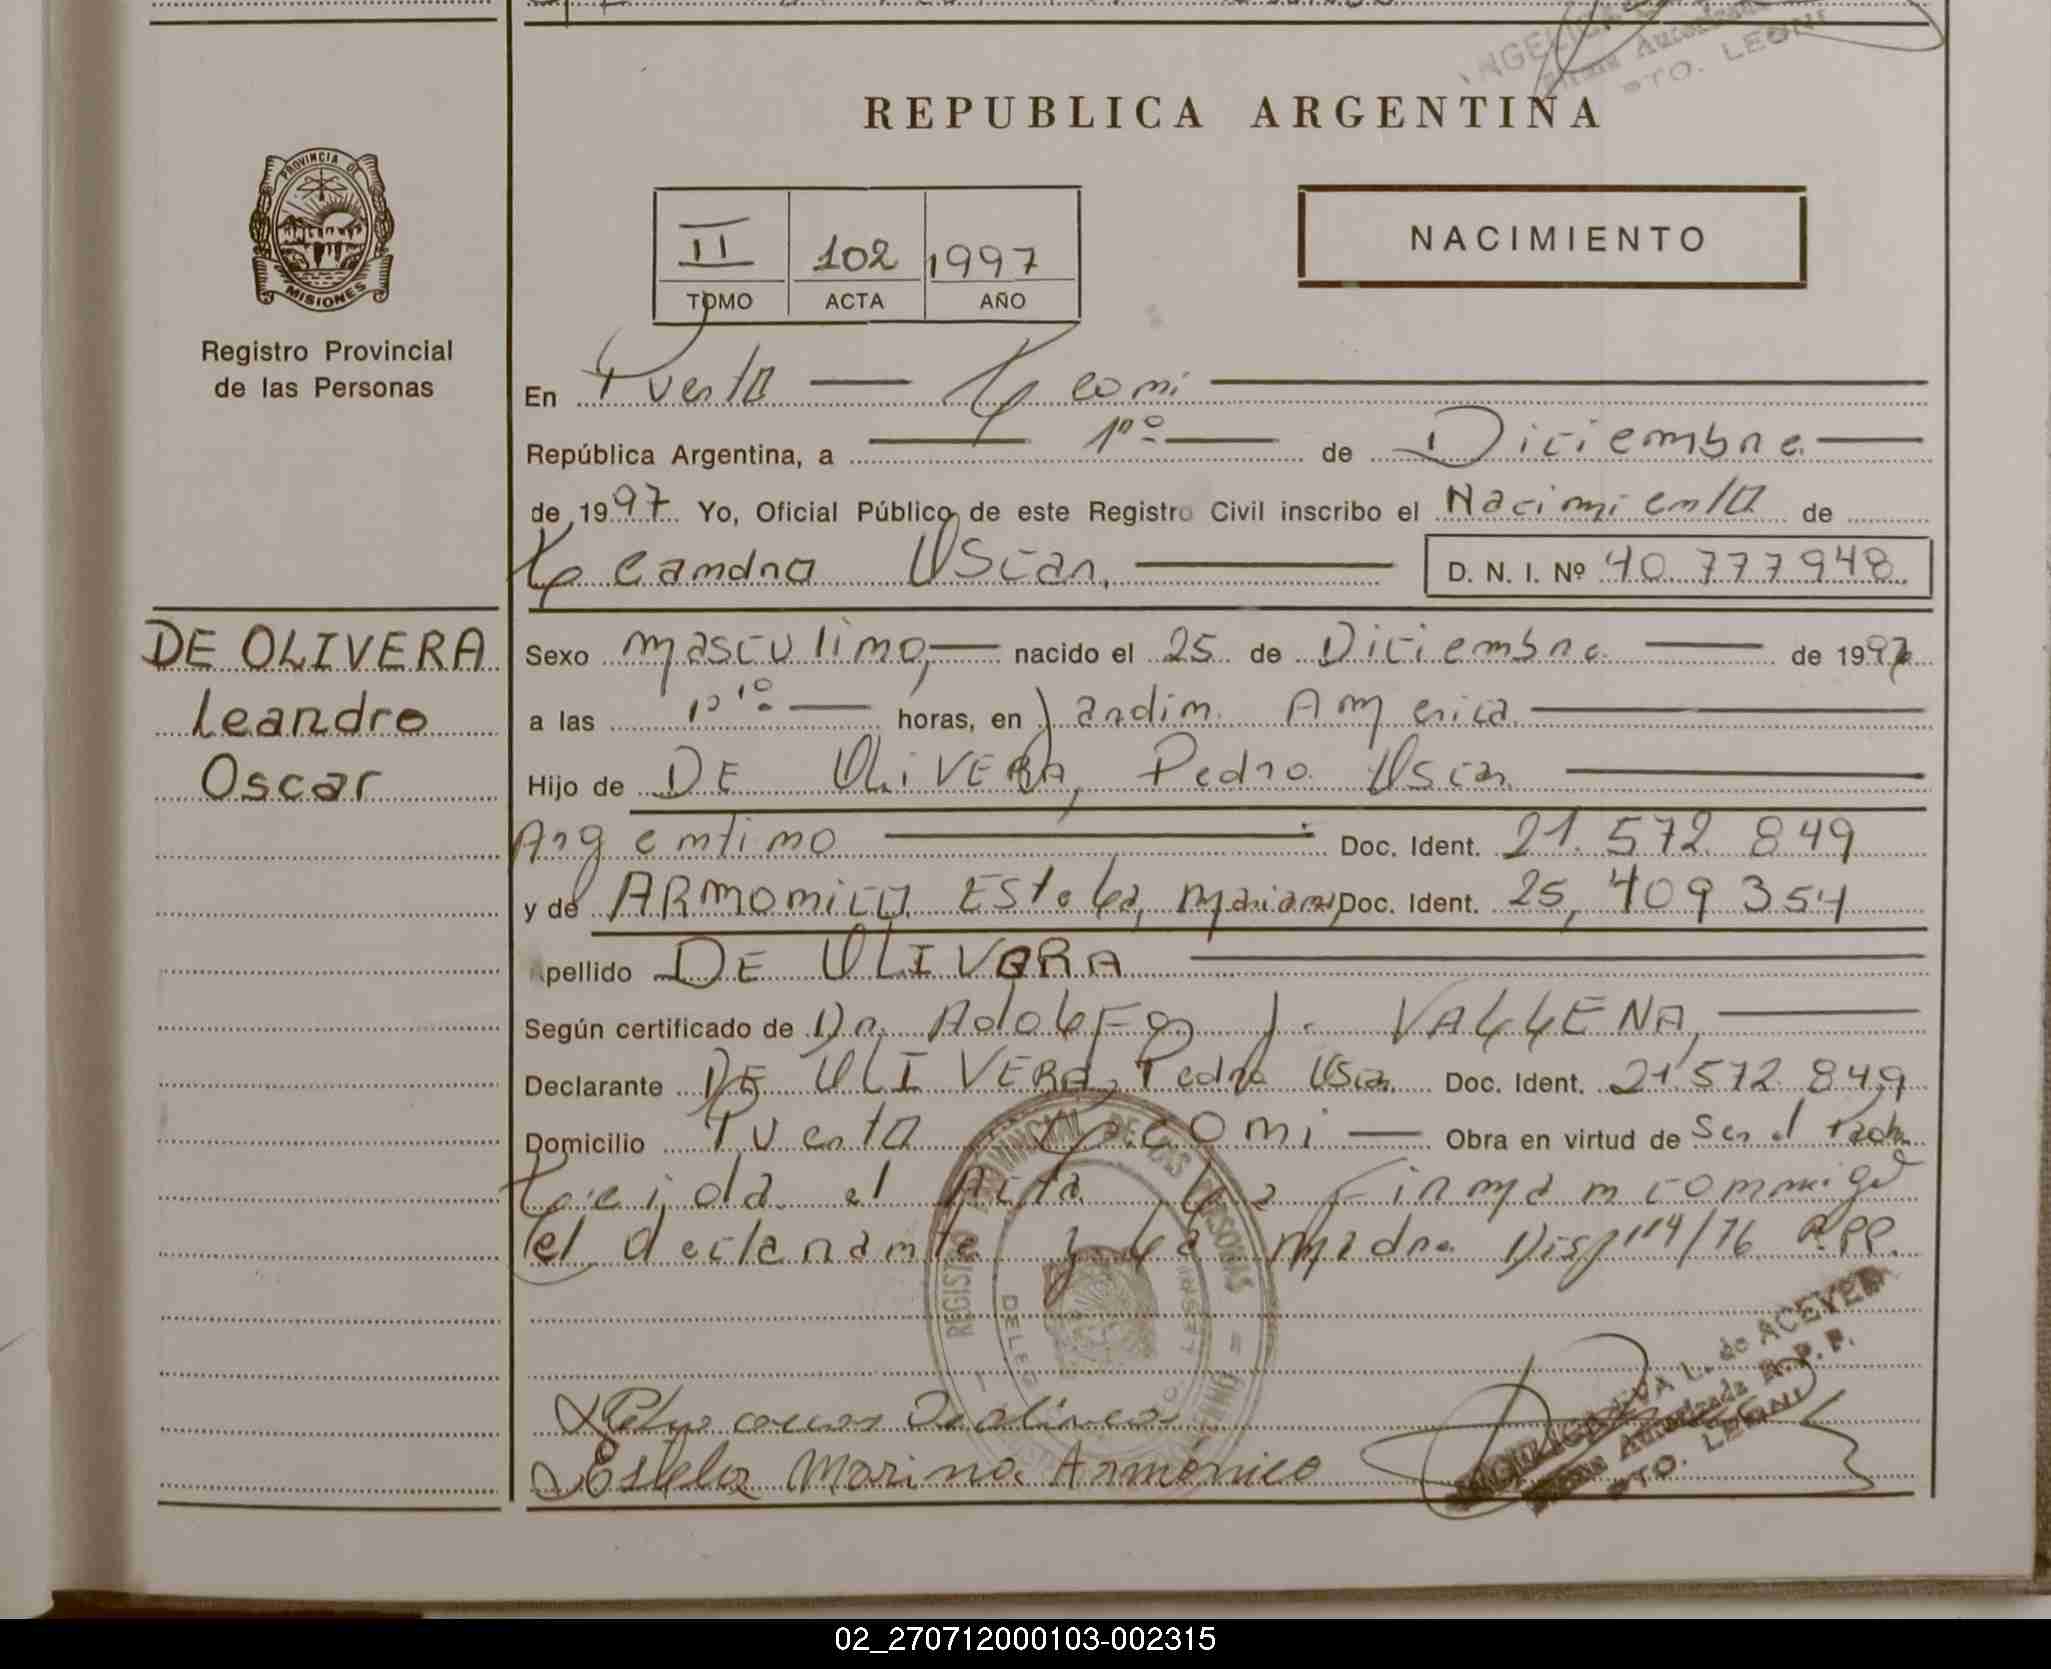 NGELICA
LEONI
REPUBLICA ARGENTINA
PROVINCIA DE
MISIONES
Registro Provincial
de las Personas
II 102 1997
TOMO ACTA AÑO
NACIMIENTO
En Puerto Leoni
República Argentina, a 1º de Diciembre
de 1997 Yo, Oficial Público de este Registro Civil inscribo el Nacimiento de
Leandro Oscar, D. N. I. Nº 40.777948
DE OLIVERA
Leandro
Oscar
Sexo masculino, nacido el 25 de Diciembre de 1997
a las horas, en Jardin America
Hijo de DE OLIVERA, Pedro Oscar
Argentino Doc. Ident. 21.572.849
y de ARMONICO Estela, Mariana, Doc. Ident. 25,409354
Apellido DE OLIVERA
Según certificado de Dr. Adolfo J. VALLENA,
Declarante DE OLIVERA, Pedro Oscar Doc. Ident. 21572.849
Domicilio Puerto Leoni Obra en virtud de Ser el Padre
Leeida el Acta La Firman conmigo
el declarante y la madre Disp 114/76 RPP.
REGISTRO PROVINCIAL DE LAS PERSONAS
L. de ACEVEDO
Autorizada R. P. P.
PTO. LEONI
Estela Marina Armónico
02_270712000103-002315